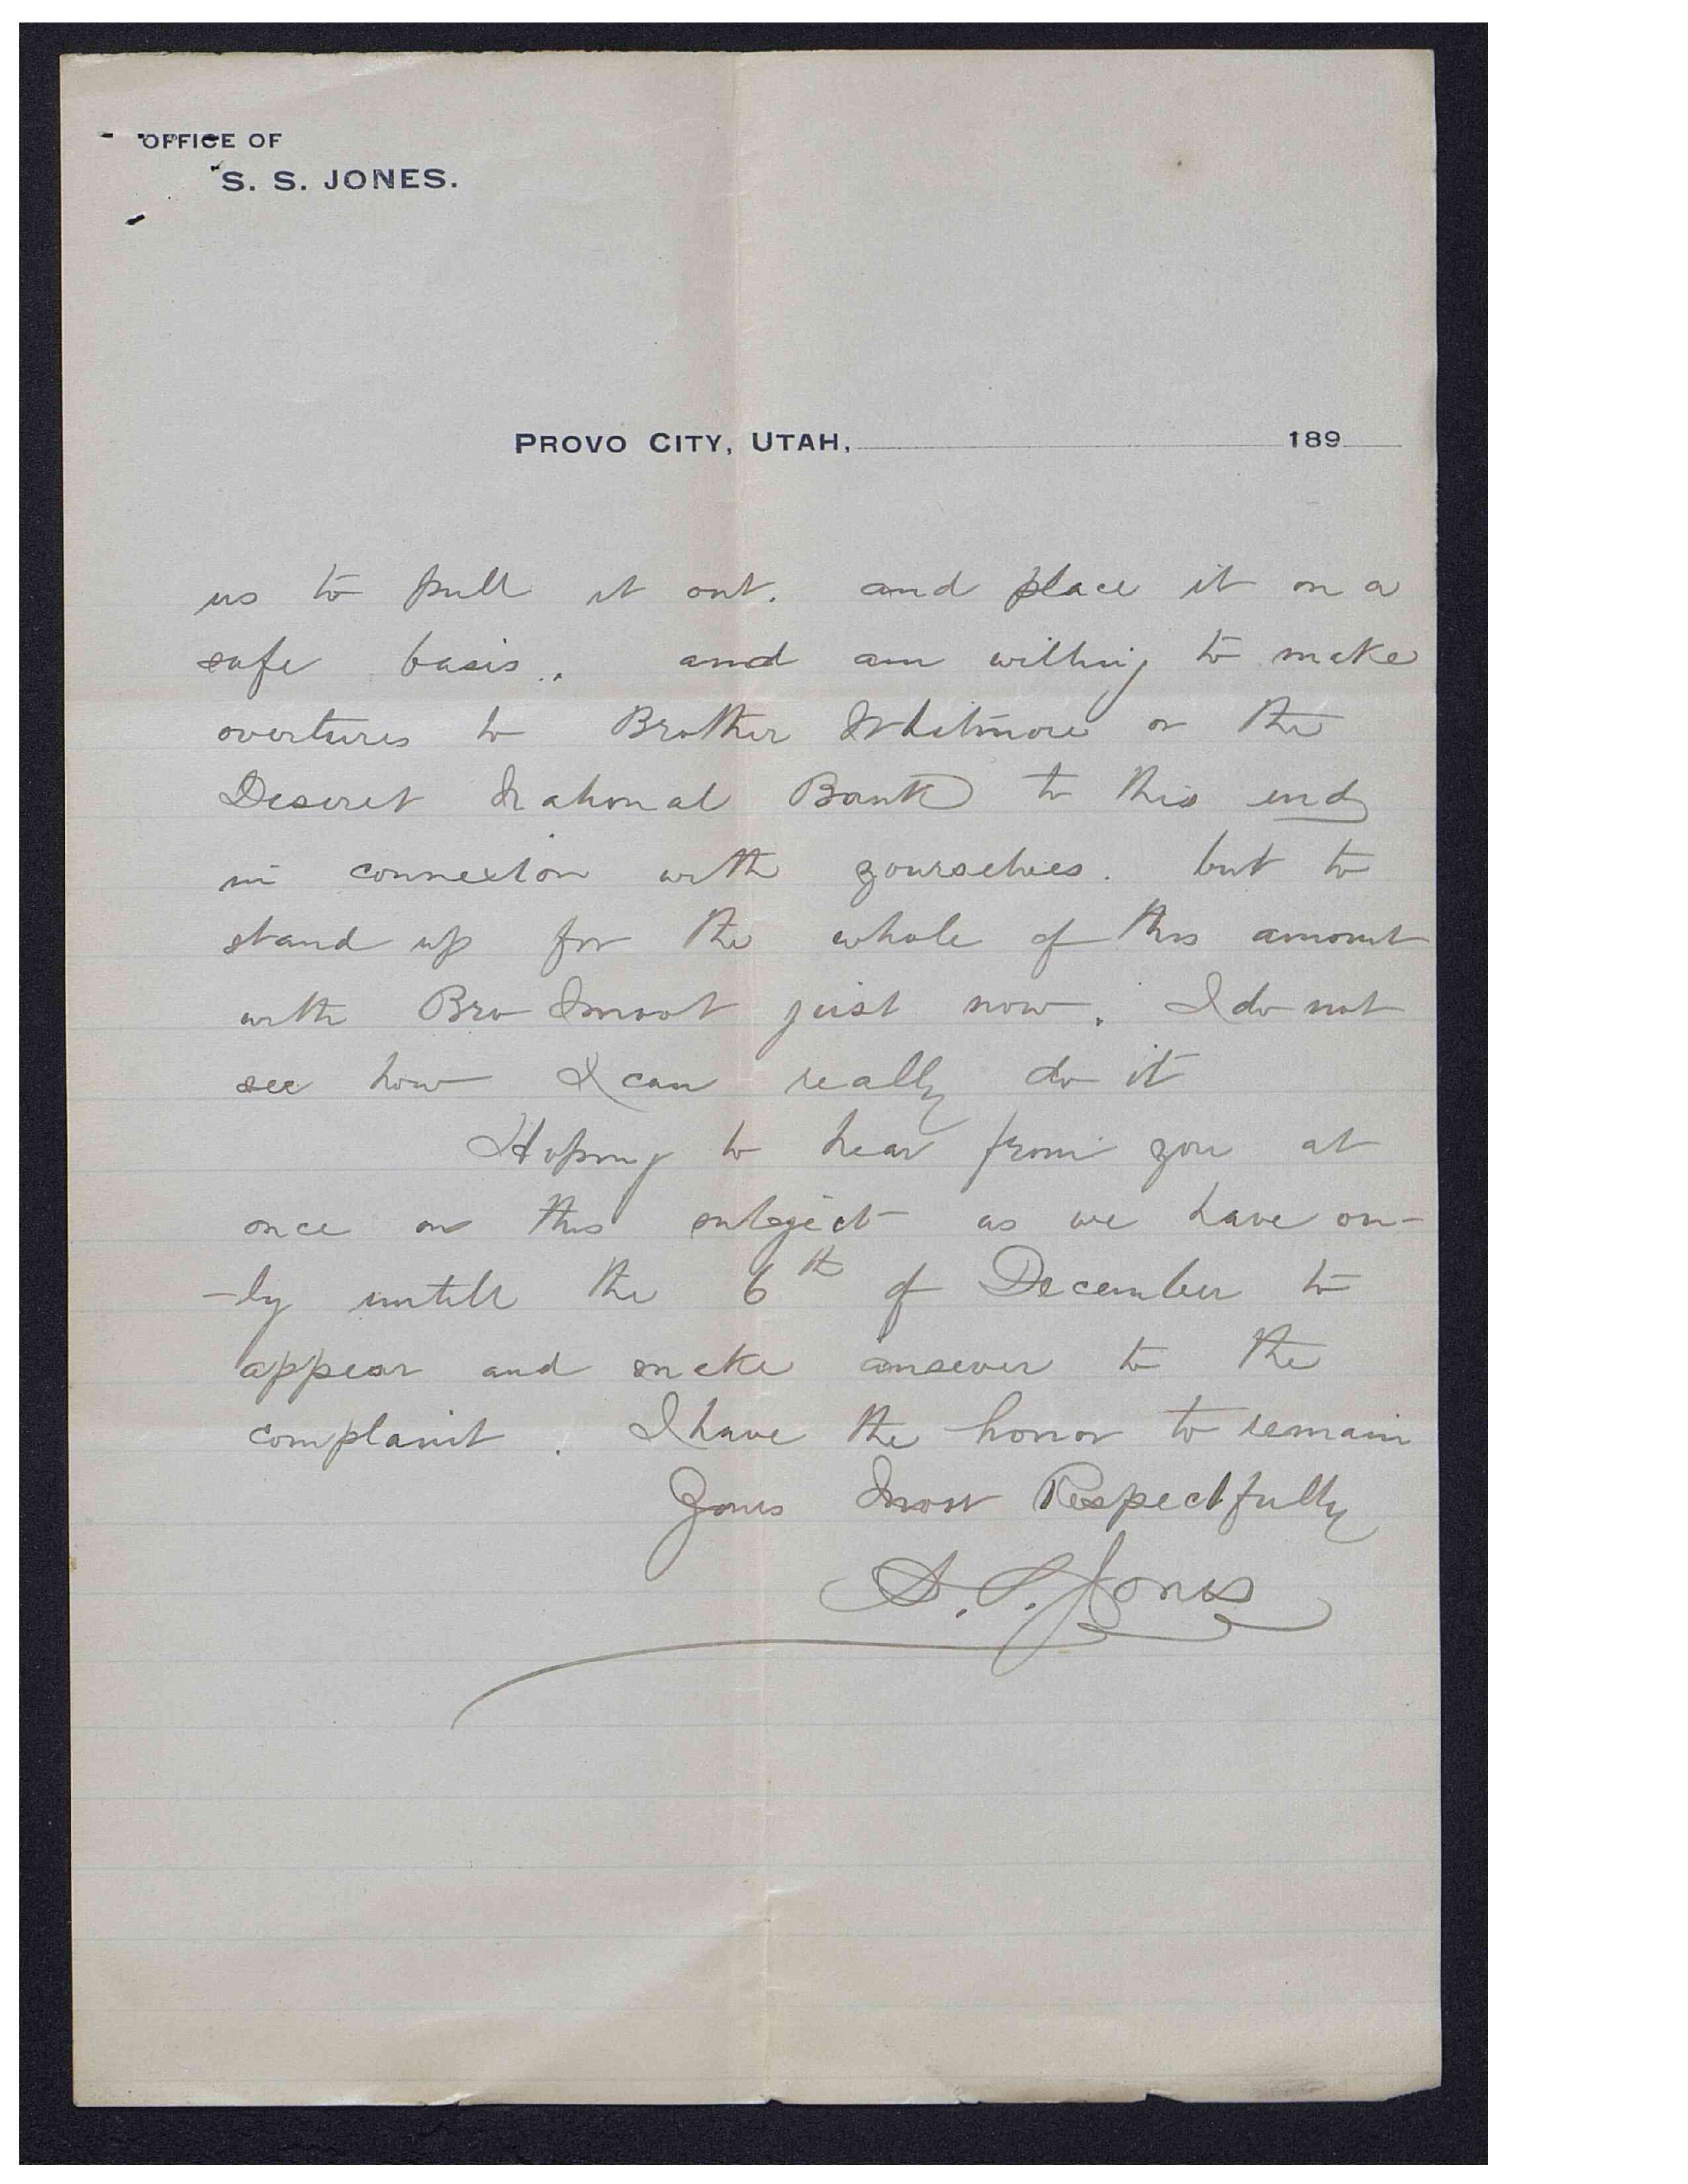 OFFICE OF
S. S. JONES.
PROVO CITY, UTAH, 189
us to pull it out. and place it on a
safe basis. and am willing to make
overtures to Brother Whitmore or the
Deseret National Bank to this end
in connexion with yourselves. but to
stand up for the whole of this amount
with Bro Smoot just now. I do not
see how I can really do it
Hoping to hear from you at
once on this subject as we have on-
-ly untill the 6th of December to
appear and make answer to the
complaint. I have the honor to remain
Yours Most Respectfully
S. S. Jones